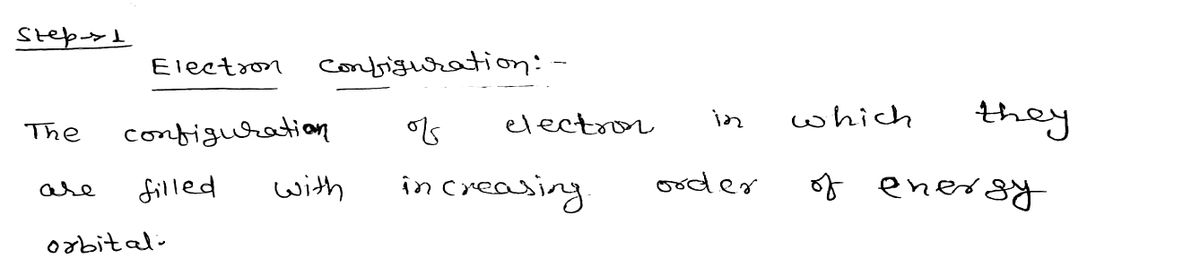 Step→1
Electron configuration:-
The configuration of electron in which they
are filled with increasing order of energy
orbital.